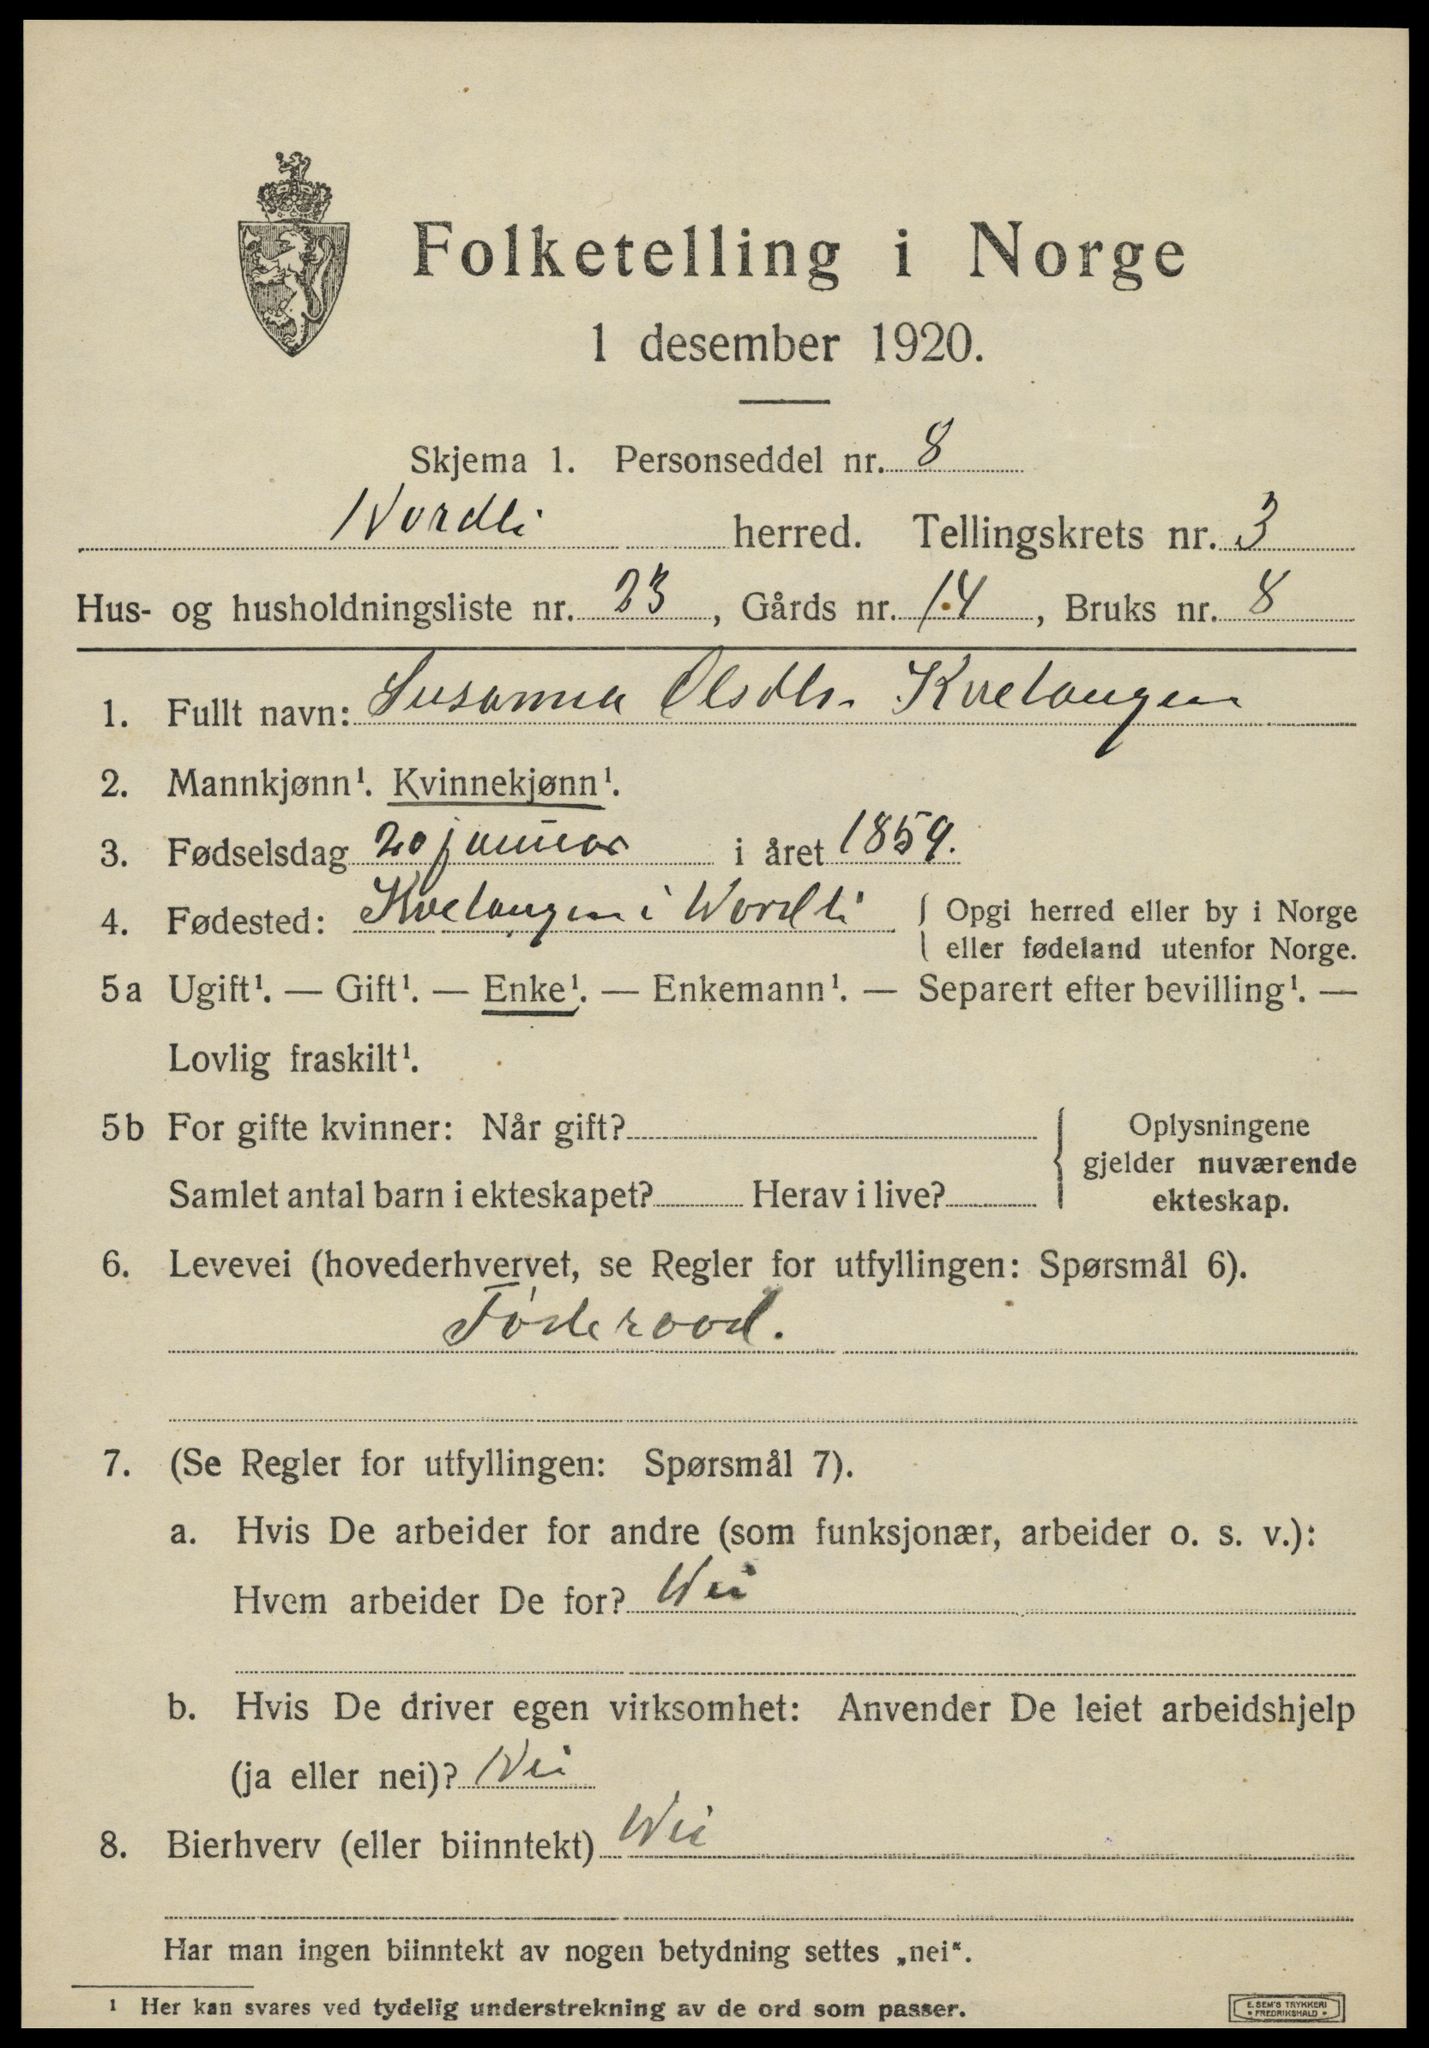 Folketelling i Norge
1 desember 1920.
Skjema 1. Personseddel nr. 8
Nordli herred. Tellingskrets nr. 3
Hus- og husholdningsliste nr. 23, Gårds nr. 14, Bruks nr. 8
1. Fullt navn: Susanna Olsdtr. Kvelangen
2. Mannkjønn¹. Kvinnekjønn¹.
3. Fødselsdag 20 januar i året 1859.
4. Fødested: Kvelangen i Nordli { Opgi herred eller by i Norge
eller fødeland utenfor Norge.
5a Ugift¹. — Gift¹. — Enke¹. — Enkemann¹. — Separert efter bevilling¹. —
Lovlig fraskilt¹.
5b For gifte kvinner: Når gift?
Samlet antal barn i ekteskapet? Herav i live?
Oplysningene
gjelder nuværende
ekteskap.
6. Levevei (hovederhvervet, se Regler for utfyllingen: Spørsmål 6).
Føderaad.
7. (Se Regler for utfyllingen: Spørsmål 7).
a. Hvis De arbeider for andre (som funksjonær, arbeider o. s. v.):
Hvem arbeider De for? Nei
b. Hvis De driver egen virksomhet: Anvender De leiet arbeidshjelp
(ja eller nei)? Nei
8. Bierhverv (eller biinntekt) Nei
Har man ingen biinntekt av nogen betydning settes „nei“.
¹ Her kan svares ved tydelig understrekning av de ord som passer.
E. SEM'S TRYKKERI
• FREDRIKSHALD •